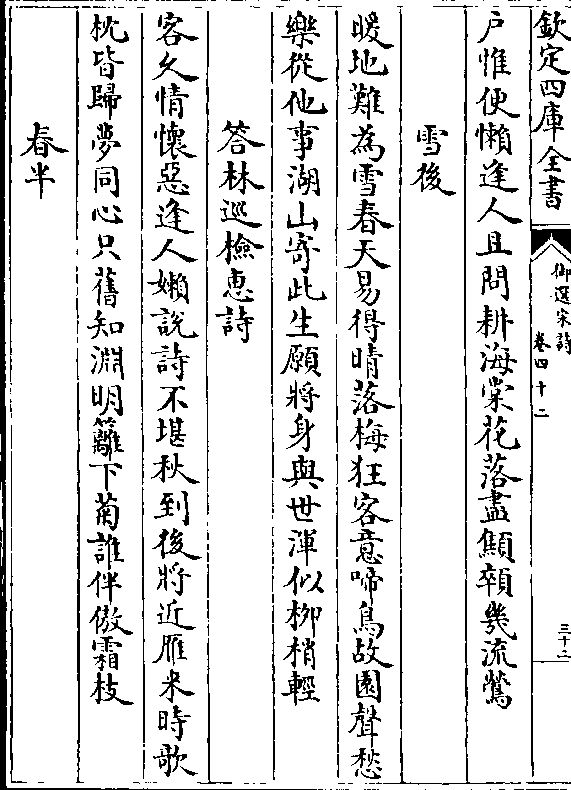 欽定四庫全書
御選宋詩
卷四十二
三十二
戶惟便懶逢人且問耕海棠花落盡顦顇幾流鶯
雪後
暖地難為雪春天易得晴落梅狂客意啼鳥故園聲愁
樂從他事湖山寄此生願將身與世渾似柳梢輕
答林巡檢惠詩
客久情懷惡逢人嬾說詩不堪秋到後將近雁来時歌
枕皆歸夢同心只舊知淵明籬下菊誰伴傲霜枝
春半